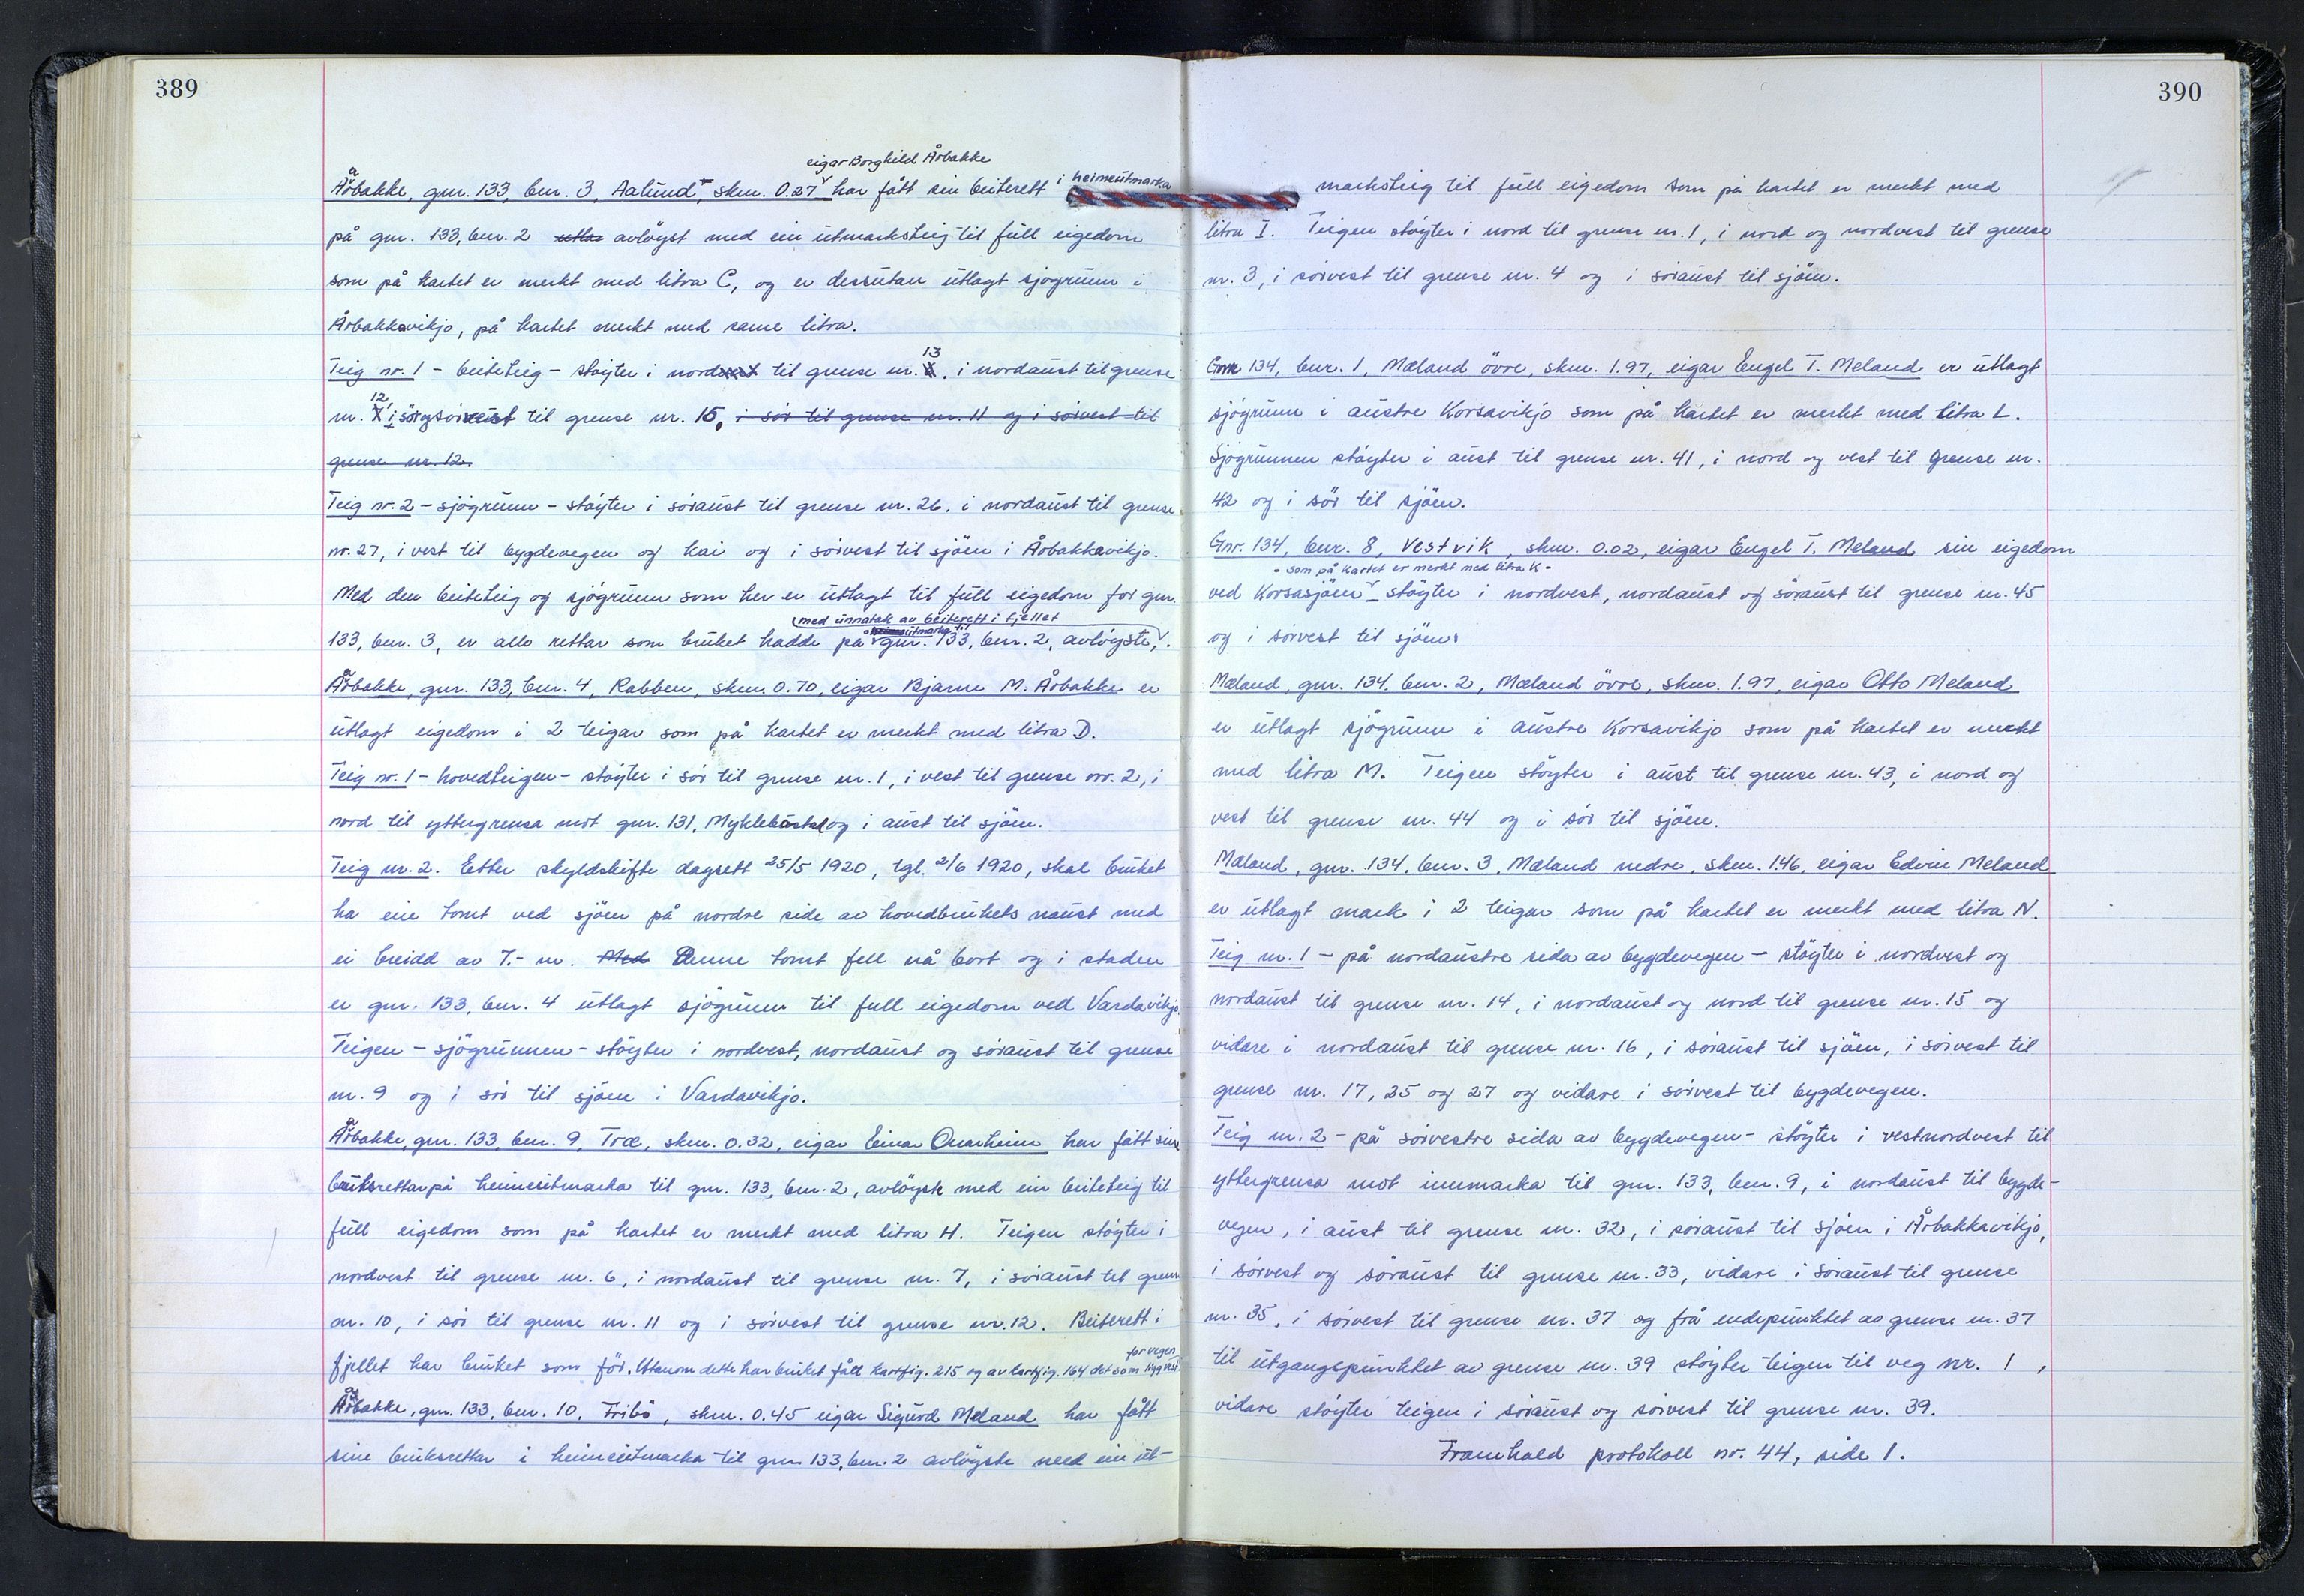 389
eigar Borghild Årbakke
Årbakke, gnr. 133, bnr. 3, Aalund, skm. 0.27 har fått sin beiterett i heimeutmarka
på gnr. 133, bnr. 2 utla avlöyst med ein utmarksteig til full eigedom
som på kartet er merkt med litra C, og er dessutan utlagt sjögrunn i
Årbakkavikjo, på kartet merkt med same litra.
Teig nr. 1 - beiteteig - stöyter i nord til grense nr. 13, i nordaust til grense
nr. 12, i sör og sörvest til grense nr. 15, i sör til grense nr. 11 og i sörvest til
grense nr. 12.
Teig nr. 2 - sjögrunn - stöyter i söraust til grense nr. 26, i nordaust til grense
nr. 27, i vest til bygdevegen og kai og i sörvest til sjöen i Årbakkavikjo.
Med den beiteteig og sjögrunn som her er utlagt til full eigedom for gnr.
med unnatak av beiterett i fjellet
133, bnr. 3, er alle rettar som bruket hadde på heimeutmarka til gnr. 133, bnr. 2, avlöyste.
Årbakke, gnr. 133, bnr. 4, Rabben, skm. 0.70, eigar Bjarne M. Årbakke er
utlagt eigedom i 2 teigar som på kartet er merkt med litra D.
Teig nr. 1 - hovedteigen - stöyter i sör til grense nr. 1, i vest til grense nr. 2, i
nord til yttergrensa mot gnr. 131, Myklebust og i aust til sjöen.
Teig nr. 2. Etter skyldskifte dagsett 25/5 1920, tgl. 2/6 1920, skal bruket
ha ein tomt ved sjöen på nordre side av hovedbrukets naust med
ei breidd av 7.- m. Med Denne tomt fell nå bort og i staden
er gnr. 133, bnr. 4 utlagt sjögrunn til full eigedom ved Vardavikjo.
Teigen - sjögrunnen - stöyter i nordvest, nordaust og söraust til grense
nr. 9 og i sör til sjöen i Vardavikjo.
Årbakke, gnr. 133, bnr. 9, Træ, skm. 0.32, eigar Einar Qvarheim har fått sine
bruksrettar på heimeutmarka til gnr. 133, bnr. 2, avlöyst med ein beiteteig til
full eigedom som på kartet er merkt med litra H. Teigen stöyter i
nordvest til grense nr. 6, i nordaust til grense nr. 7, i söraust til grense
nr. 10, i sör til grense nr. 11 og i sörvest til grense nr. 12. Beiterett i
fjellet har bruket som för. Utanom dette har bruket fått kartfig. 215 og av kartfig. 164 det som ligg vest for vegen
Årbakke, gnr. 133, bnr. 10, Fribo, skm. 0.45 eigar Sigurd Meland har fått
sine bruksrettar i heimeutmarka til gnr. 133, bnr. 2 avlöyste med ein ut-
390
marksteig til full eigedom som på kartet er merkt med
litra I. Teigen stöyter i nord til grense nr. 1, i nord og nordvest til grense
nr. 3, i sörvest til grense nr. 4 og i söraust til sjöen.
Gnr. 134, bnr. 1, Mæland övre, skm. 1.97, eigar Engel T. Meland er utlagt
sjögrunn i austre Korsavikjo som på kartet er merkt med litra L.
Sjögrunnen stöyter i aust til grense nr. 41, i nord og vest til grense nr.
42 og i sör til sjöen.
Gnr. 134, bnr. 8, Vestvik, skm. 0.02, eigar Engel T. Meland sin eigedom
- som på kartet er merkt med litra K -
ved Korsasjöen stöyter i nordvest, nordaust og söraust til grense nr. 45
og i sörvest til sjöen.
Mæland, gnr. 134, bnr. 2, Mæland övre, skm. 1.97, eigar Otto Meland
er utlagt sjögrunn i austre Korsavikjo som på kartet er merkt
med litra M. Teigen stöyter i aust til grense nr. 43, i nord og
vest til grense nr. 44 og i sör til sjöen.
Mæland, gnr. 134, bnr. 3, Mæland nedre, skm. 1.46, eigar Edvin Meland
er utlagt mark i 2 teigar som på kartet er merkt med litra N.
Teig nr. 1 - på nordaustre sida av bygdevegen - stöyter i nordvest og
nordaust til grense nr. 14, i nordaust og nord til grense nr. 15 og
vidare i nordaust til grense nr. 16, i söraust til sjöen, i sörvest til
grense nr. 17, 25 og 27 og vidare i sörvest til bygdevegen.
Teig nr. 2 - på sörvestre sida av bygdevegen - stöyter i vestnordvest til
yttergrensa mot innmarka til gnr. 133, bnr. 9, i nordaust til bygde-
vegen, i aust til grense nr. 32, i söraust til sjöen i Årbakkavikjo,
i sörvest og söraust til grense nr. 33, vidare i söraust til grense
nr. 35, i sörvest til grense nr. 37 og frå endepunktet av grense nr. 37
til utgangspunktet av grense nr. 39 stöyter teigen til veg nr. 1,
vidare stöyter teigen i söraust og sörvest til grense nr. 39.
Framhald protokoll nr. 44, side 1.